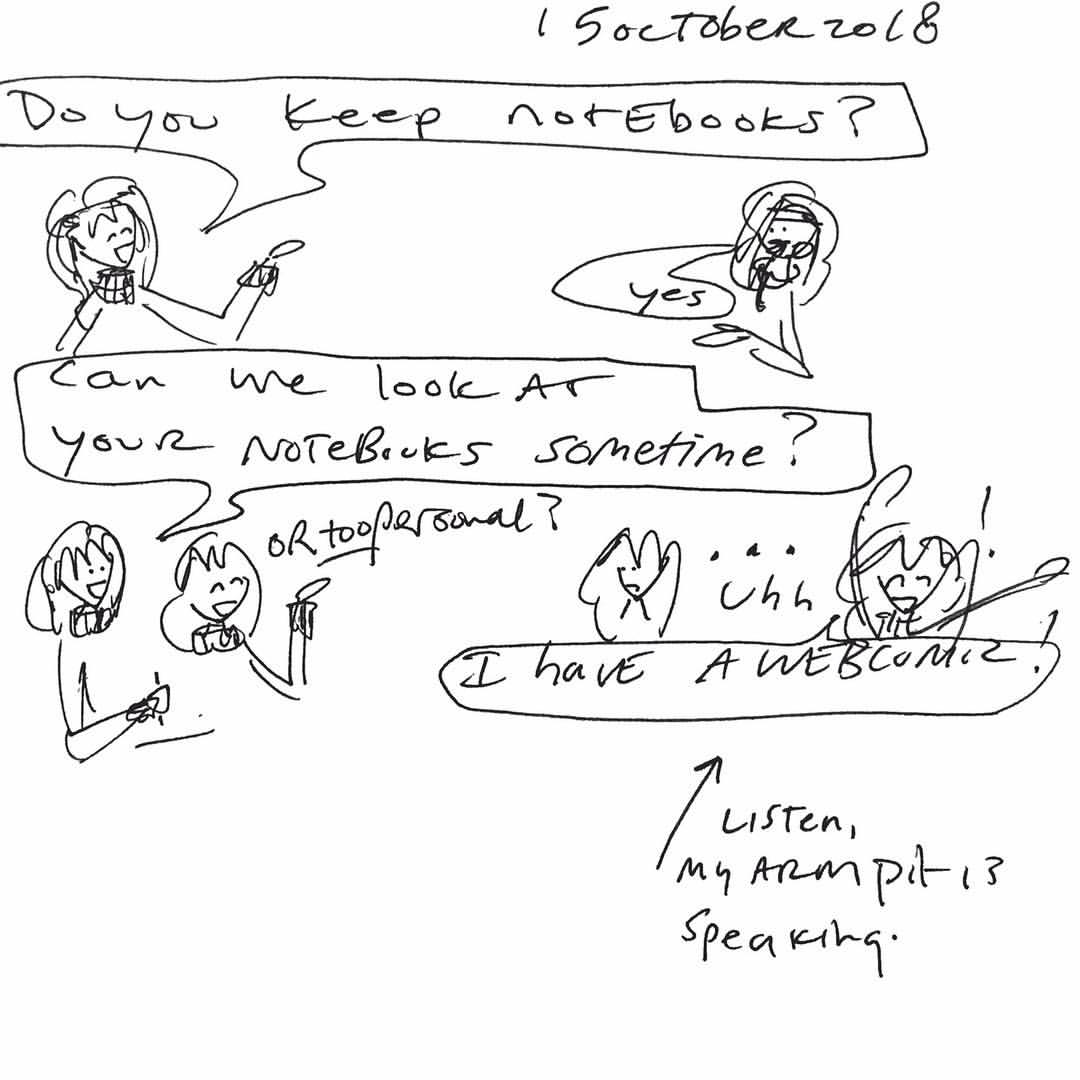 15 OCTOBER 2018
Do you keep notEbooks?
yes
can we look AT
youR NOTeBooks sometime?
OR too personal?
...
Uhh
!
I haVE A WEBCOMIC!
LISTen,
My ARMpit is
Speaking.